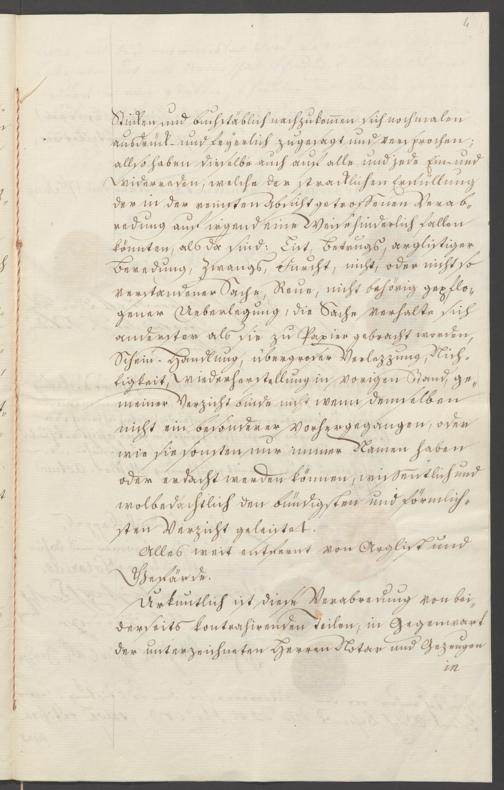 4
Stücken und buchstäblich nachzukommen sich nochmalen
ausdrück- und feyerlich zugesagt und versprochen;
allso haben dieselbe auch auf alle und jede Ein- und
Widerreden, welche der stracklichen Erfüllung
der in der reinsten Absicht getroffenen Verab-
redung auf irgend eine Weise hinderlich fallen
könnten, als da sind: List, Betrugs, arglistiger
Beredung, Zwangs, Furcht, nicht, oder nicht so
verstandener Sache, Reue, nicht behörig gepflo-
gener Ueberlegung; die Sache verhalte sich
anderster als sie zu Papier gebracht worden,
Schein-Handlung, übergroser Verlezzung, Nich-
tigkeit, Wiederherstellung in vorigen Stand, ge-
meiner Verzicht binde nicht wenn demselben
nicht ein besonderer vorhergegangen, oder
wie sie sonsten nur immer Namen haben
oder erdacht werden können, wissentlich und
wolbedächtlich den bündigsten und förmlich-
sten Verzicht geleistet.
Alles weit entfernt von Arglist und
Gefärde.
Urkuntlich ist diese Verabredung von bei-
derseits kontrahirenden Teilen, in Gegenwart
der unterzeichneten Herren Notar und Gezeugen
in